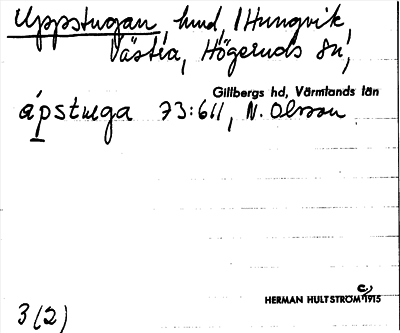 Uppstugan, hmd, i Hungvik,
Västra, Högeruds sn,
Gillbergs hd, Värmlands län
ápstuga 73:611, N. Olsson
HERMAN HULTSTRÖM c:a 1915
3(2)